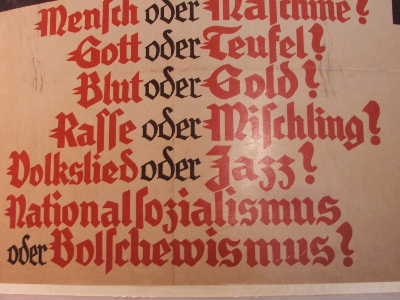 Mensch oder Maschine?
Gott oder Teufel?
Blut oder Gold?
Rasse oder Mischling?
Volkslied oder Jazz?
Nationalsozialismus
oder Bolschewismus?